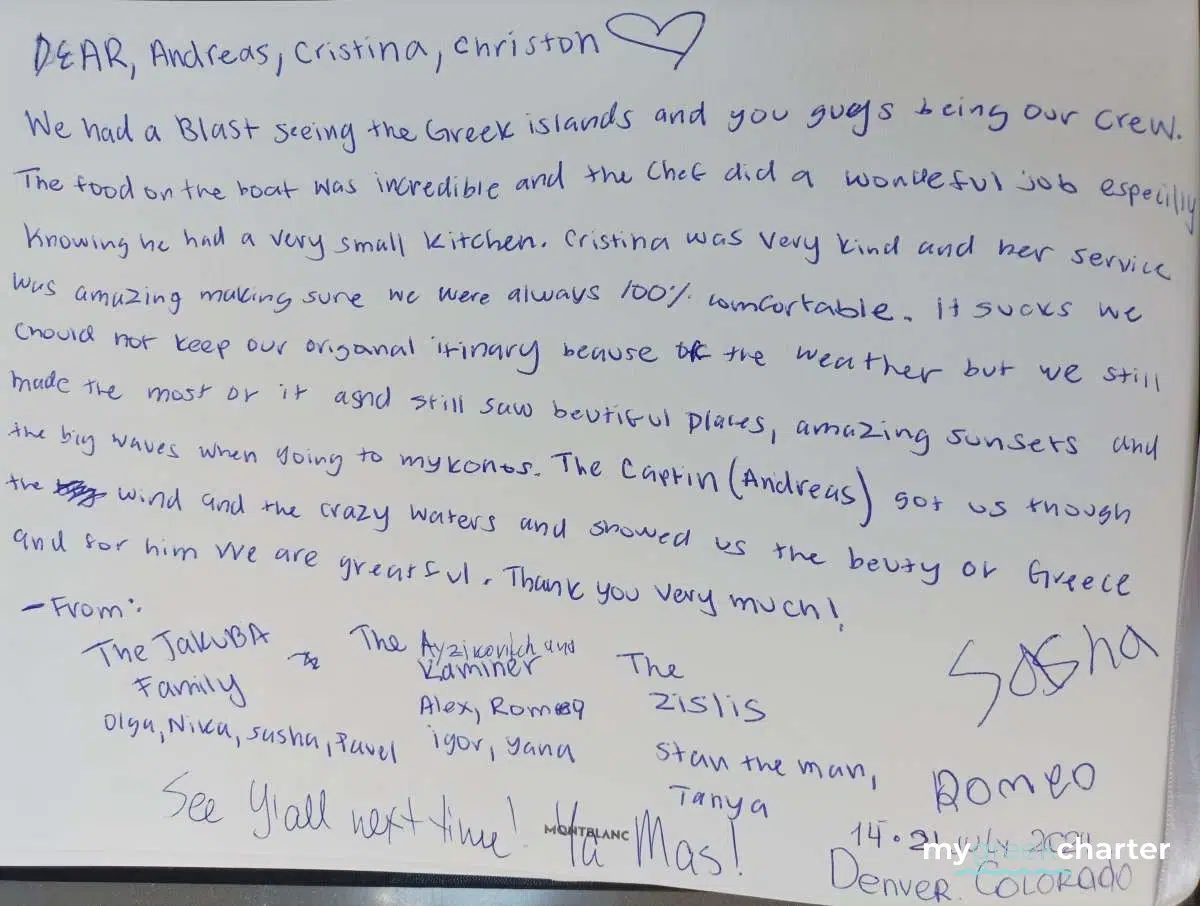 DEAR, Andreas, Cristina, Christon
We had a Blast seeing the Greek islands and you guys being our crew.
The food on the boat was incredible and the Chef did a wondeful job especilly
Knowing he had a very small kitchen. Cristina was very kind and her service
was amazing making sure we were always 100% comfortable. it sucks we
chould not keep our origanal itinary beause of the weather but we still
made the most of it agnd still saw beutiful places, amazing sunsets and
the big waves when going to mykonos. The Captin (Andreas) got us though
the wind and the crazy waters and showed us the beuty of Greece
and for him We are greatful. Thank you very much!
- From:
The JAKUBA
Family
Olga, Nika, Sasha, Pavel
The Ayzikovitch and
Kaminer
Alex, Romeo
igor, yana
The
Zislis
Stan the man,
Tanya
Sasha
Romeo
See Y'all next time! Ya Mas!
MONTBLANC
14.21 July 2024
mygreekcharter
Denver. COLORADO